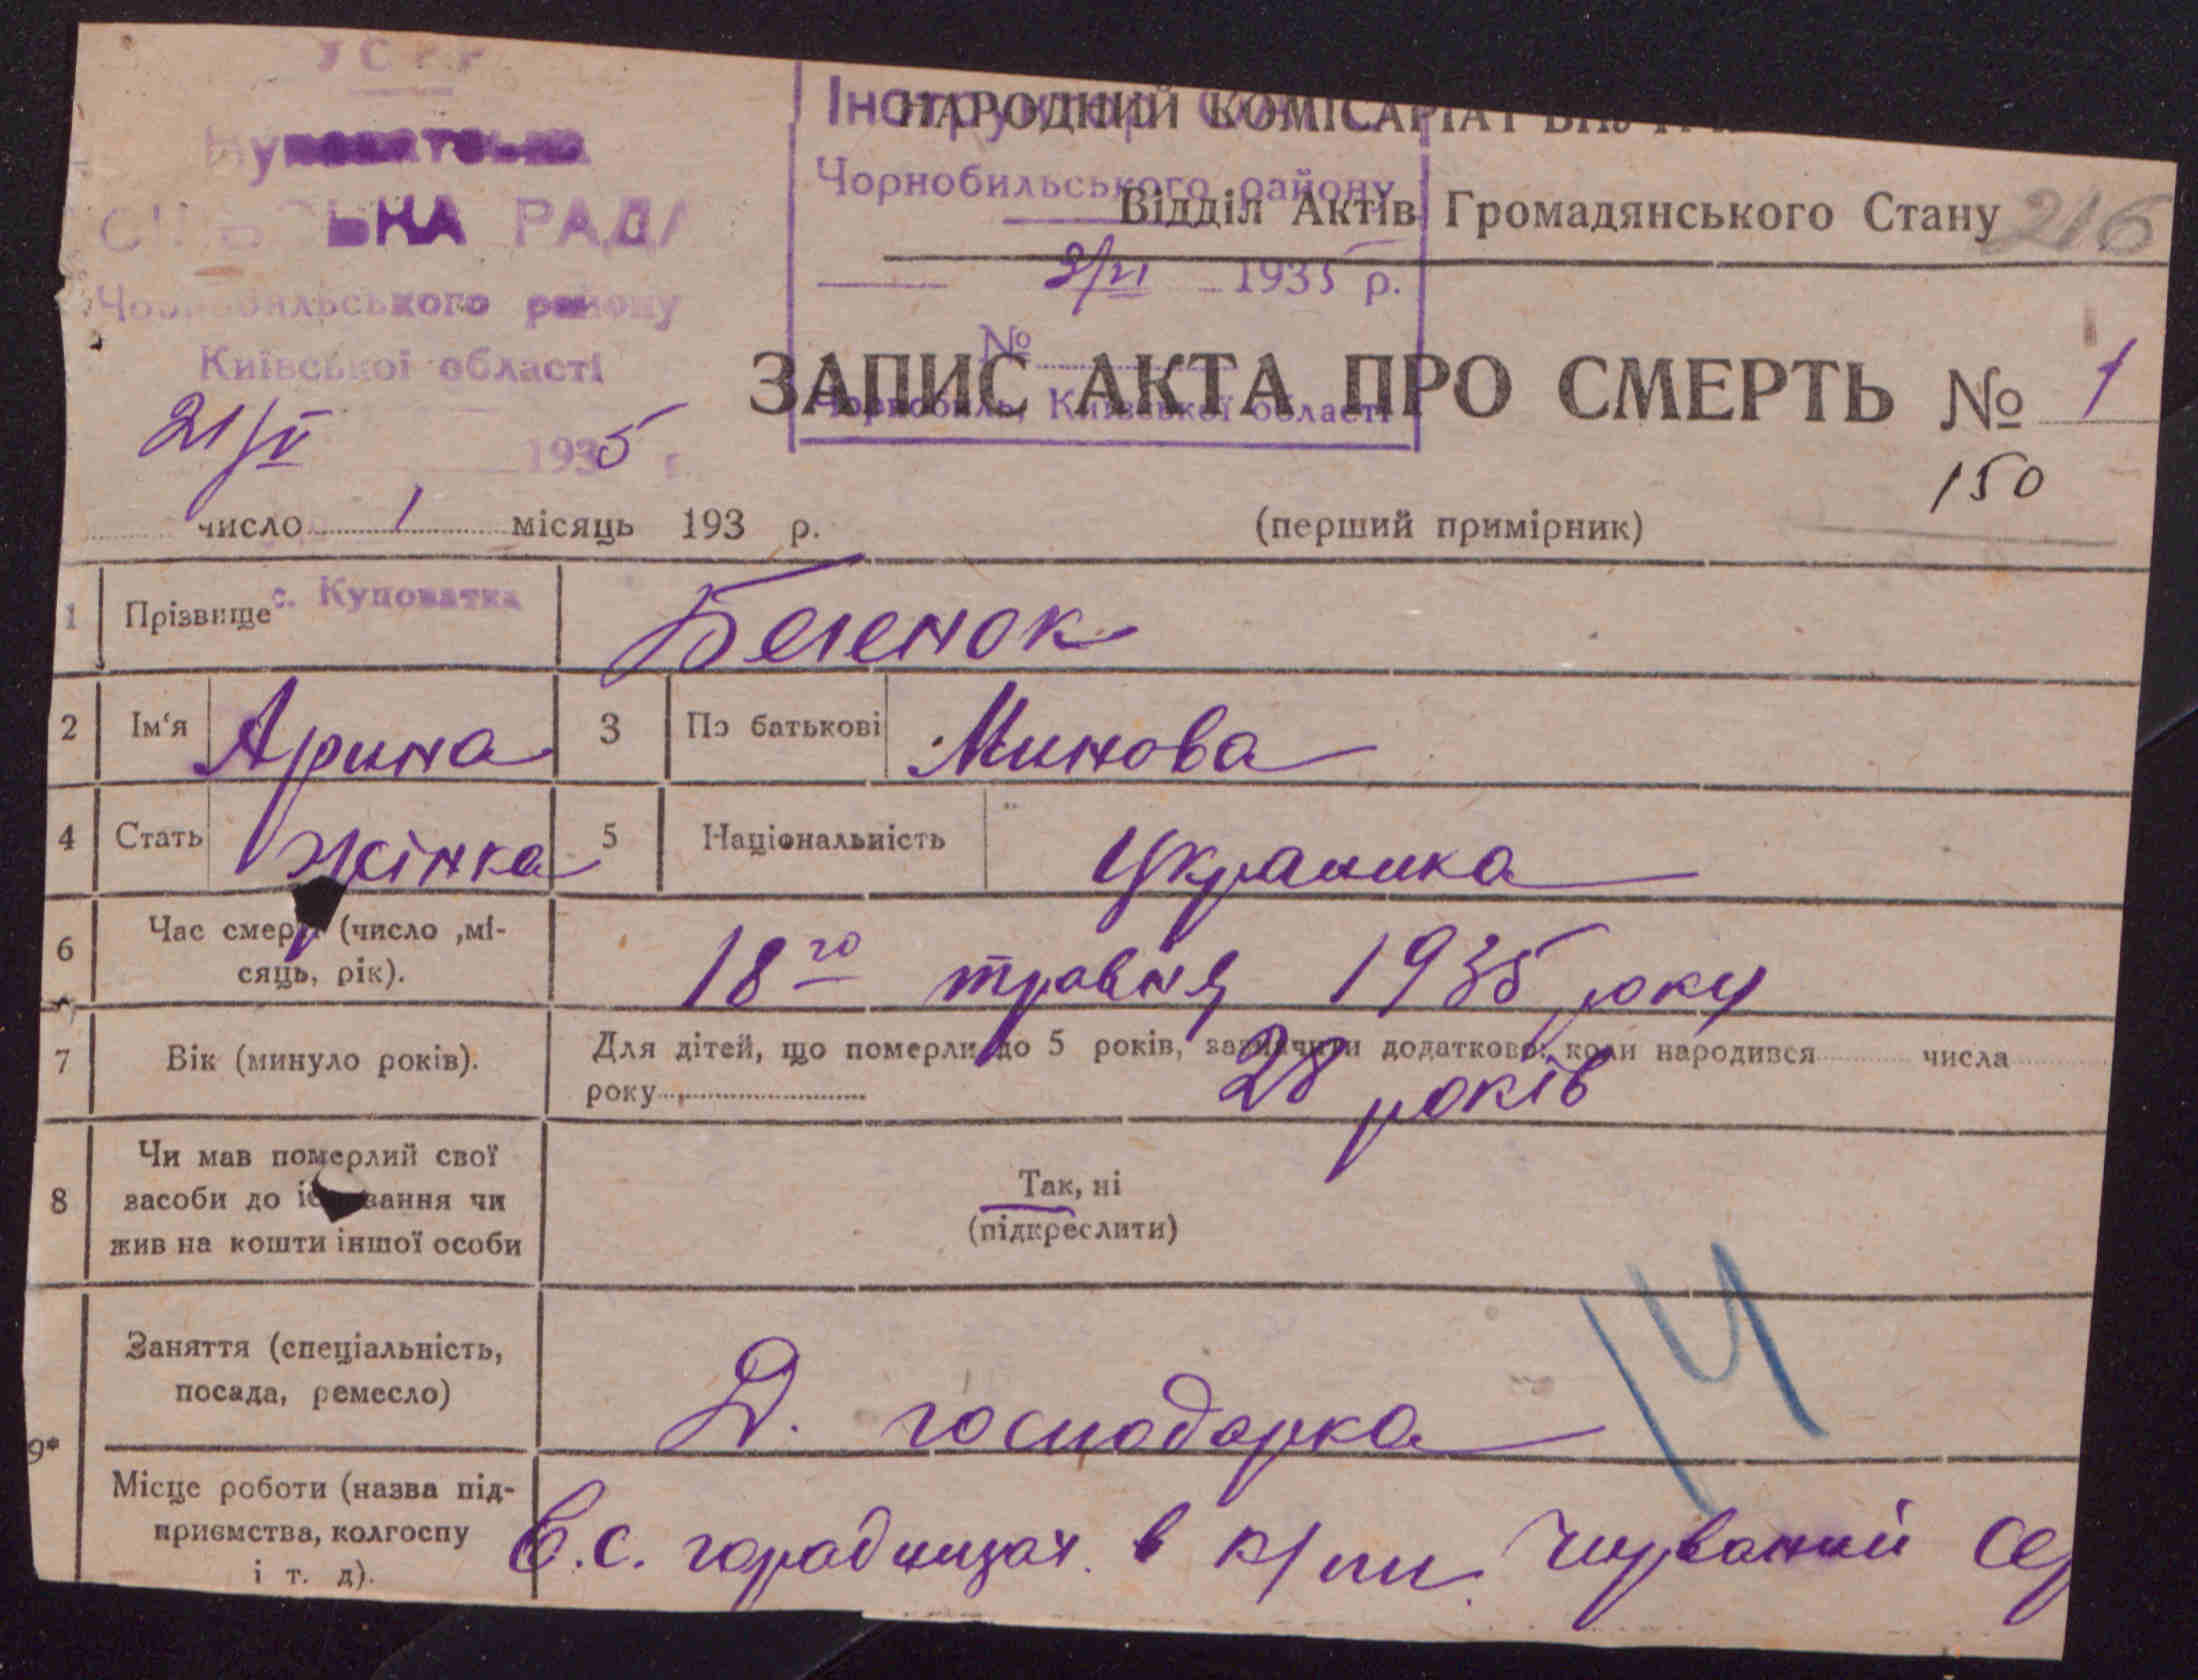 УСРР
СІЛЬСЬКА РАДА
Чорнобильського району
Київської області
21/V 1935 р.
Інструктор
Чорнобильського району
9/VI 1935 р.
№
Чорнобиль, Київської області
НАРОДНИЙ КОМІСАРІАТ
Відділ Актів Громадянського Стану
216
ЗАПИС АКТА ПРО СМЕРТЬ № 1
150
число 1 місяць 193 р. (перший примірник)
с. Куповатка
1 Прізвище Беленок
2 Ім'я Арина 3 По батькові Минова
4 Стать жінка 5 Національність Украинка
6 Час смерти (число ,мі-
сяць, рік). 18го травня 1935 року
7 Вік (минуло років). Для дітей, що померли до 5 років, зазначити додатково: коли народився числа
року 28 років
8 Чи мав померлий свої
засоби до існування чи
жив на кошти іншої особи
Так, ні
(підкреслити)
14
9* Заняття (спеціальність,
посада, ремесло) Д. господарка
Місце роботи (назва під-
приємства, колгоспу
і т. д).
в к/ггі Чирваний Се